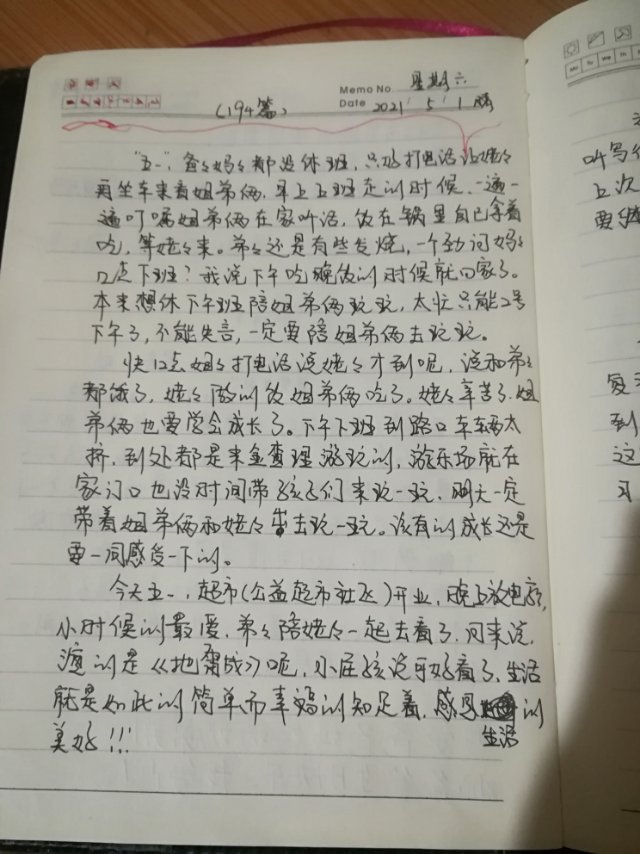 Memo No. 星期六
(194篇)
Date 2021 5 1 晴
"五一",爸々妈々都没休班,只好打电话让姥々
再坐车来看姐弟俩,早上上班走的时候,一遍一
遍叮嘱姐弟俩在家听话,饭在锅里自己拿着
吃,等姥々来。弟々还是有些发烧,一个劲问妈々
几点下班?我说下午吃晚饭的时候就回家了。
本来想休下午班陪姐弟俩玩玩,太忙只能2号
下午了,不能失言,一定要陪姐弟俩去玩玩。
快12点姐々打电话说姥々才到呢,说和弟々
都饿了,姥々做的饭姐弟俩吃了。姥々辛苦了,姐
弟俩也要学会成长了。下午下班到路口车辆太
挤,到处都是来金查理游玩的,游乐场就在
家门口也没时间带孩子们来玩一玩,明天一定
带着姐弟俩和姥々去玩一玩。该有的成长还是
要一同感受一下的。
今天五一,超市(公益超市社区)开业,晚上放电影,
小时候的最爱,弟々陪姥々一起去看了,回来说,
演的是《地雷战》呢,小屁孩说可好看了,生活
就是如此的简单而幸福的知足着,感恩生活的
美好!!!
叫写作
上次
要
到
这
习